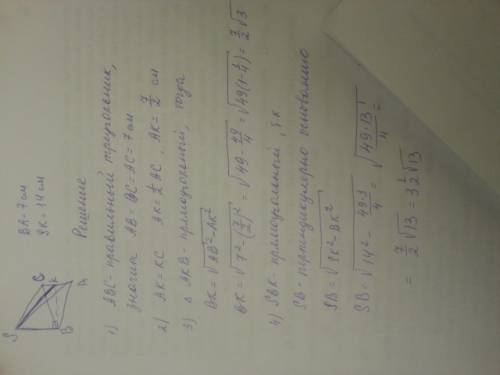 S
C
K
B
A
BA=7 см
SK=14 см
Решение
1) ABC - правильный треугольник,
значит AB=BC=AC=7 см
2) AK=KC AK=½AC, AK=7/2 см
3) △ AKB - прямоугольный, тогда
BK=√(AB²-AK²)
BK=√(7²-(7/2)²)=√(49-49/4)=√(49(1-¼))=7/2√3
4) SBK - прямоугольный, т.к
SB - перпендикулярно основанию
SB=√(SK²-BK²)
SB=√(14²-49·3/4)=√(49·13/4)=
=7/2√13=3½√13